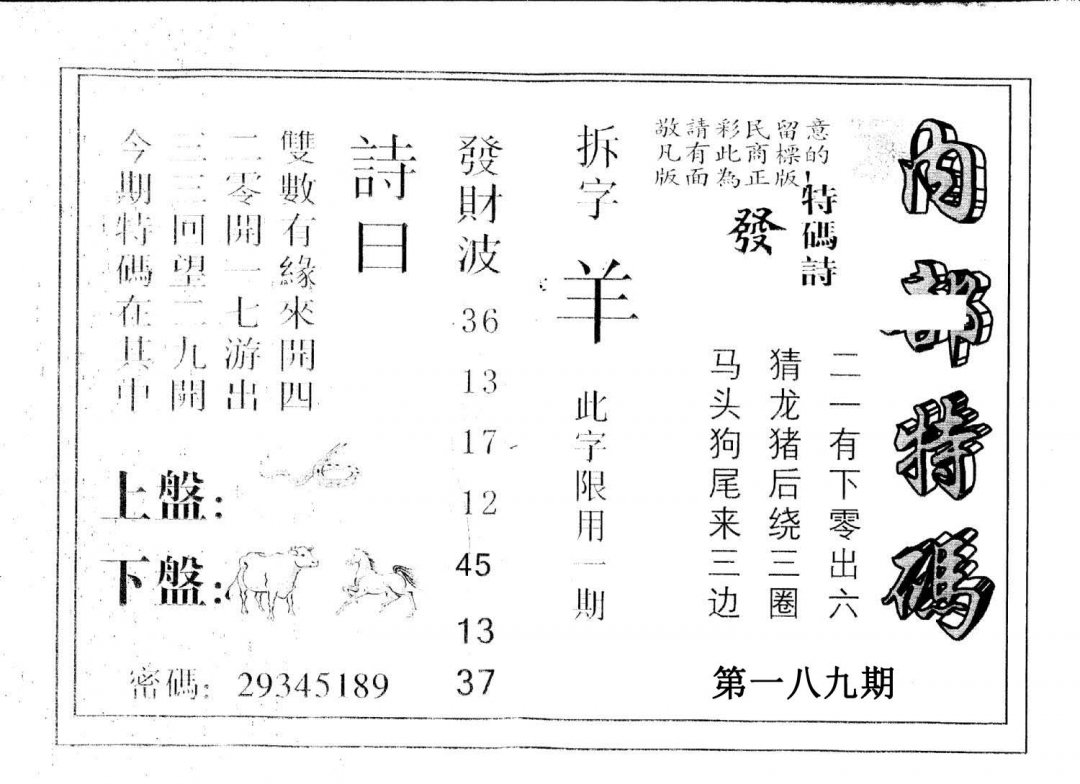 內部特碼
意的
留標版
民商正
彩此為
請有面
敬凡版
特碼詩
發
二一有下零出六
猜龙猪后绕三圈
马头狗尾来三边
第一八九期
拆字
羊
此字限用一期
發財波
36
13
17
12
45
13
37
詩曰
雙數有緣來開四
二零開一七游出
三三回望二九開
今期特碼在其中
上盤:
下盤:
密碼: 29345189